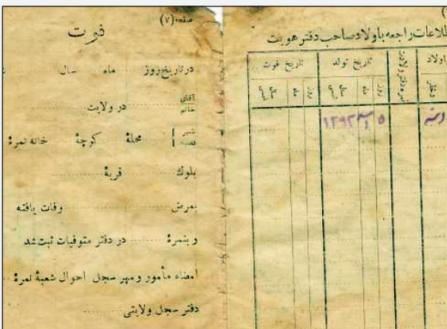 اطلاعات راجعه باولاد صاحب دفتر هویت
اولاد
تاریخ تولد
تاریخ فوت
روز
ماه
سال
۵ ۱۲۹۲
صفحه (۷)
فوت
در تاریخ روز ماه سال
آقای
خانم
در ولایت
شهر
قصبه
محلهٔ کوچهٔ خانه نمرهٔ
بلوک قریهٔ
بمرض وفات یافته
و بنمرهٔ در دفتر متوفیات ثبت شد
امضاء مأمور و مهر سجل احوال شعبهٔ نمرهٔ
دفتر سجل ولایتی